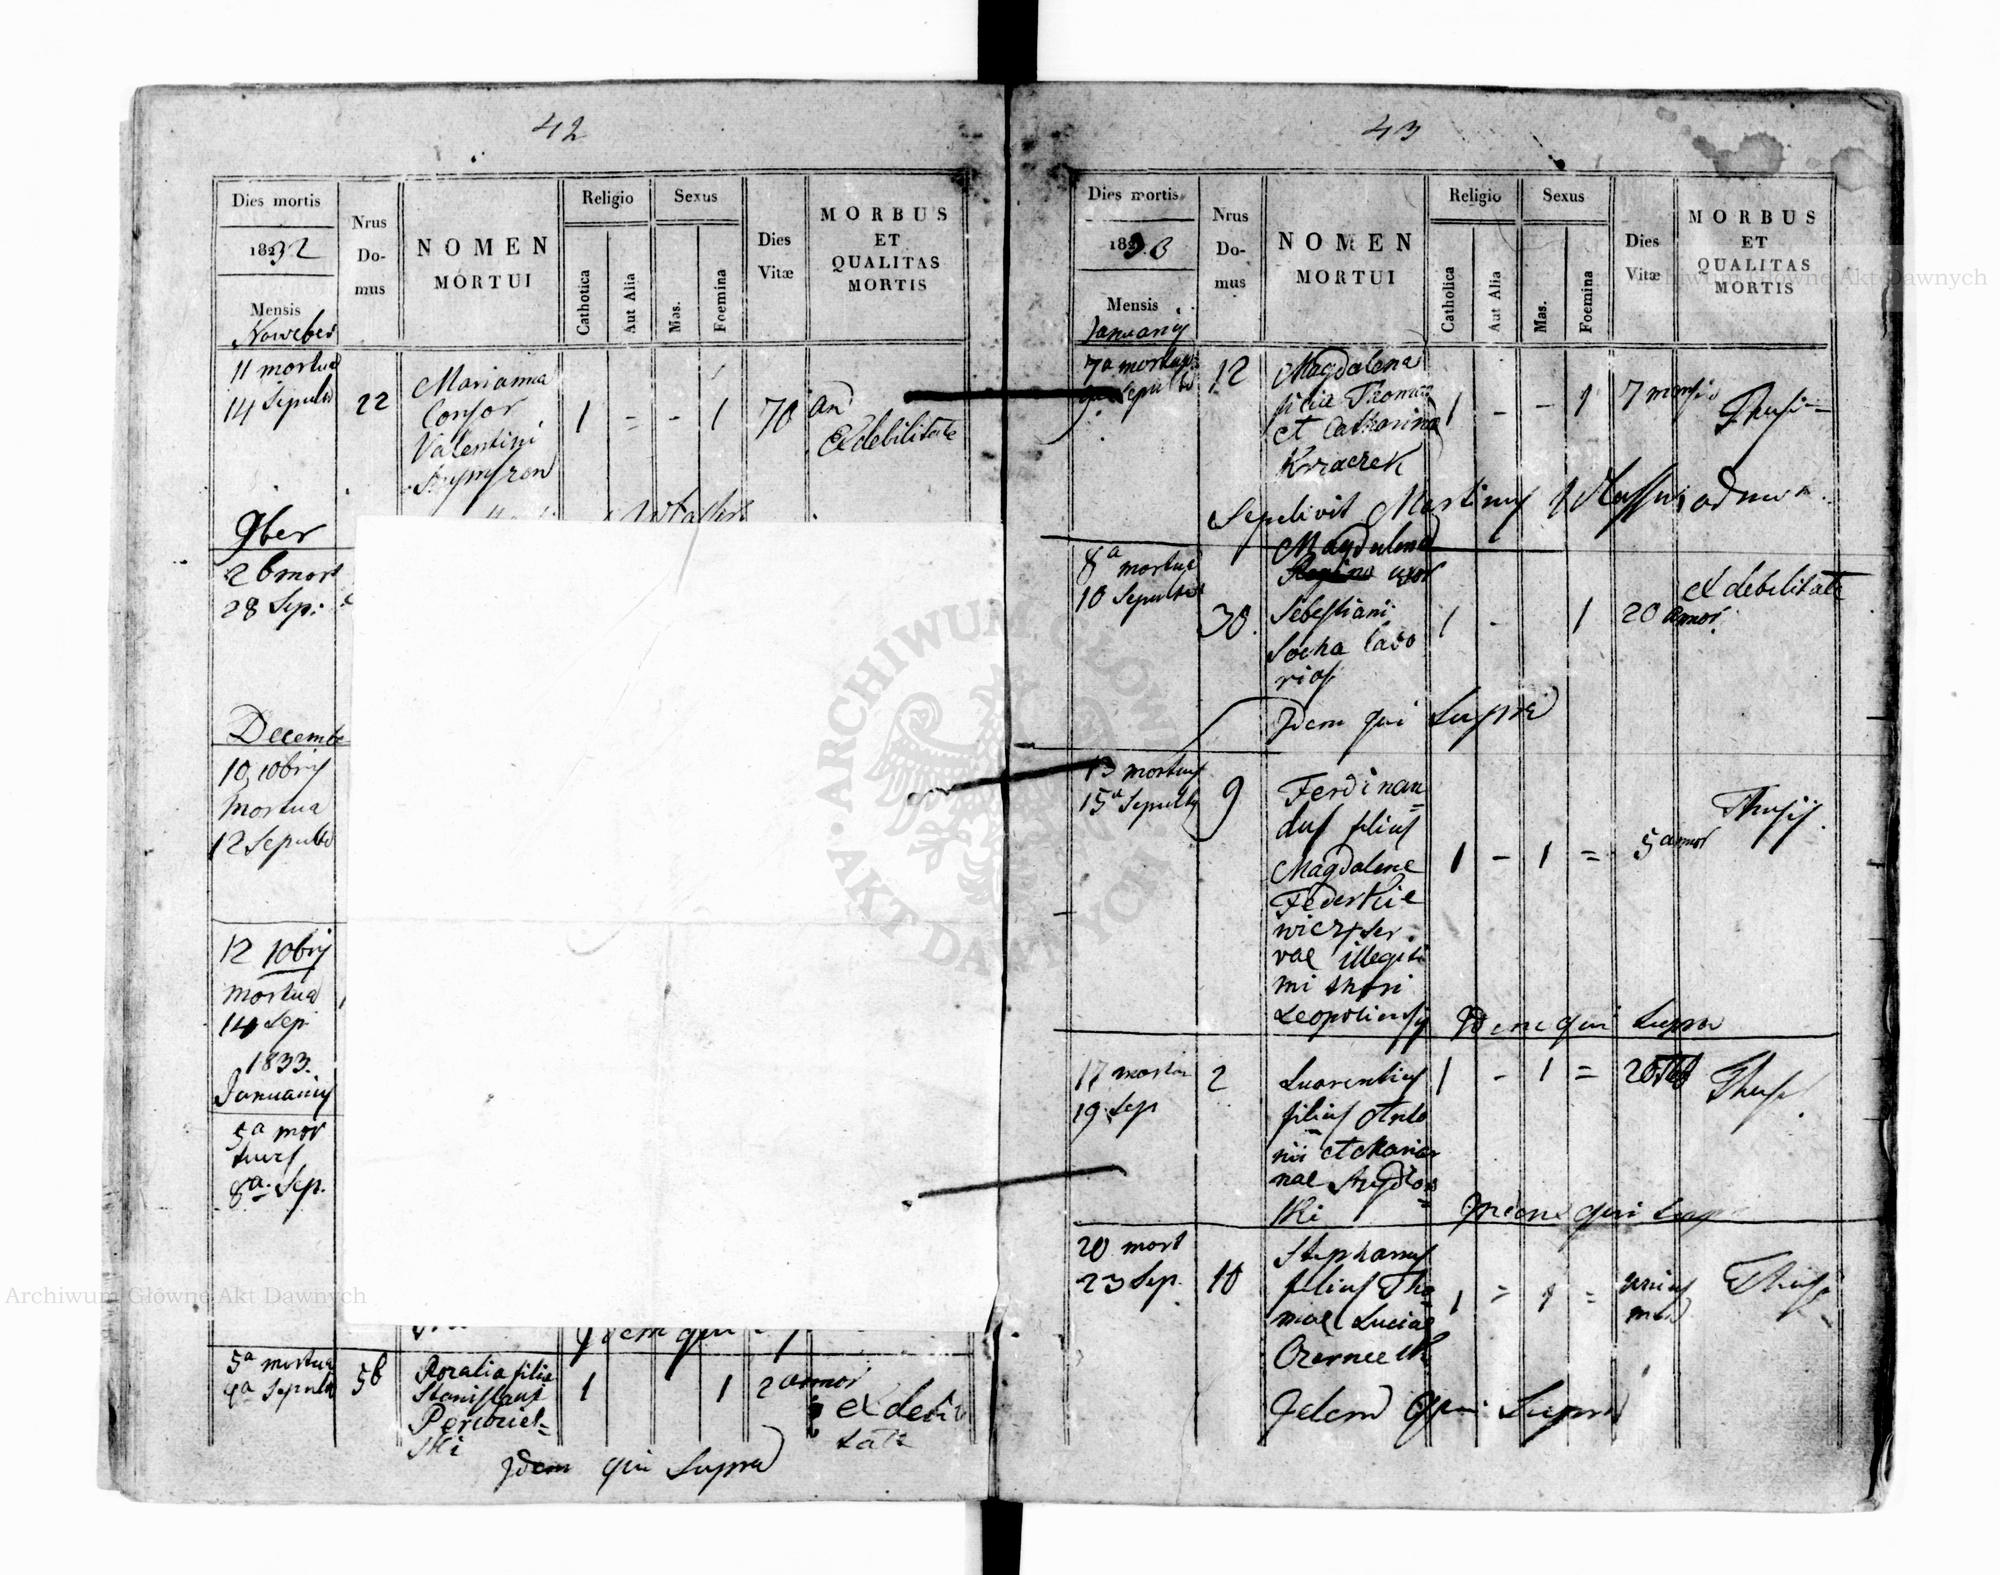 42
Dies mortis
1832
Mensis
November
Nrus Domus
NOMEN
MORTUI
Religio
Cathotica
Aut Alia
Sexus
Mas.
Foemina
Dies
Vitæ
MORBUS
ET
QUALITAS
MORTIS
11 mortua
14 Sepulta
22
Marianna
Consor
Valentini
1 = - 1
70 an
Ex debilitate
9ber
26 mort
28 Sep.
Decembe
10 10bris
mortua
12 Sepulta
12 10bris
mortua
14 Sep
1833.
Januarius
5a mor
tuus
8a Sep.
Idem qui
5a mortua
Sepulta
56
Rozalia filia
Stanislaus
ski
1 1
2 annor
ex debi
tate
Idem qui Supra
43
Dies mortis
1833
Mensis
Januarius
Nrus
Do-
mus
NOMEN
MORTUI
Religio
Catholica
Aut Alia
Sexus
Mas.
Foemina
Dies
Vitæ
MORBUS
ET
QUALITAS
MORTIS
7a mortua
9a Sepulta
12
Magdalena
filia Thomae
et Catharina
Kraczek
1 - - 1
7 mensis
Thusi
Sepelivit Martinus
8a mortua
10 Sepulta
30.
Magdalena
uxor
Sebestiani
Socha
1 - 1
20 annor.
ex debilitate
Idem qui Supra
13 mortuus
15a Sepultus
9
Ferdinan=
dus filius
Magdalene
Federkie
wicz ser
vae illegiti
mi thori
Leopoliensis
1 - 1 =
5 annor
Thusis.
Idem qui Supra
17 mortu
19 Sep
2
Laurentius
filius Anto
nii et Marian
nae
ski
1 - 1 =
Thus
Idem qui Supra
20 mort
23 Sep.
10
Stephanus
filius Tho
mae Luciae
1 = 1 =
unius
Thusi
Idem qui Supra
ARCHIWUM GŁÓWNE AKT DAWNYCH
Archiwum Główne Akt Dawnych
Archiwum Główne Akt Dawnych